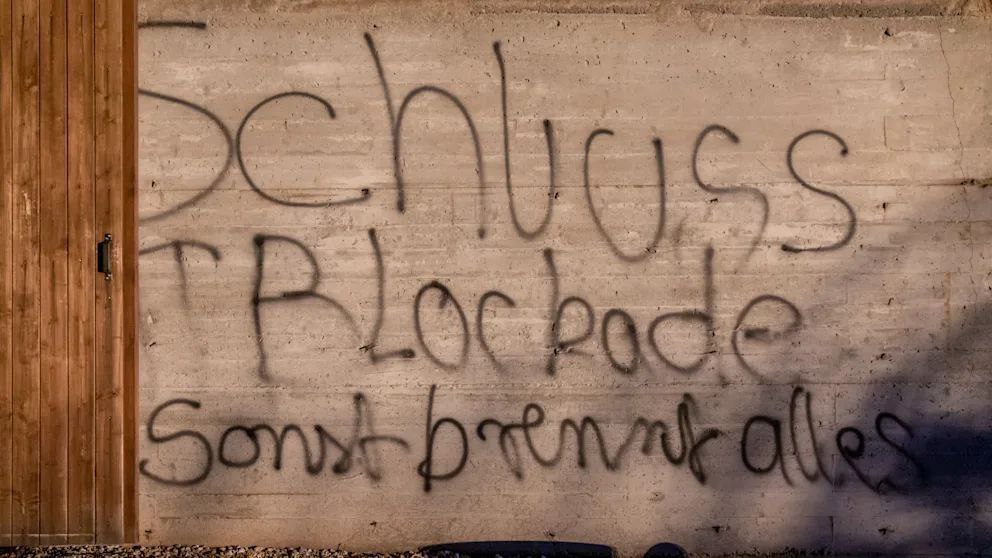 Schluuss
TRLockade
Sonst brennt alles